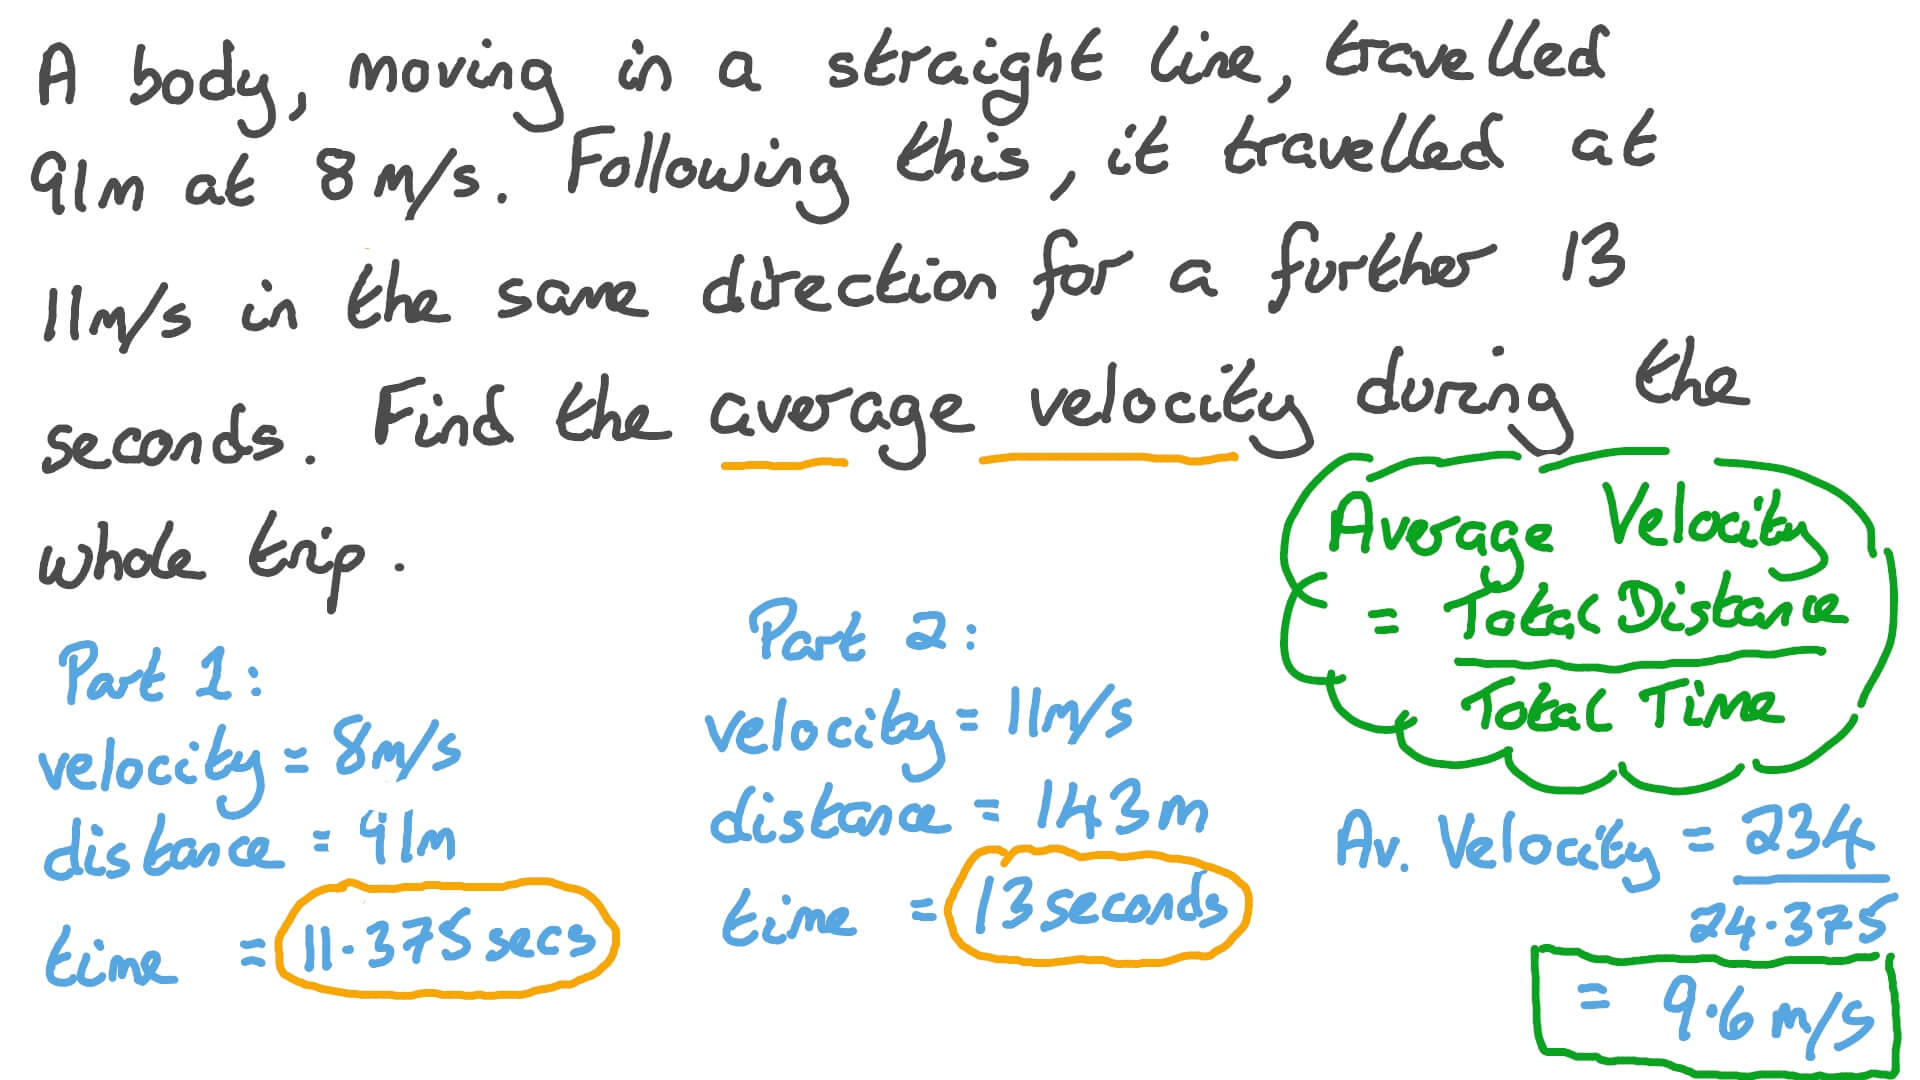 A body, moving in a straight line, travelled
91m at 8 m/s. Following this, it travelled at
11m/s in the same direction for a further 13
seconds. Find the average velocity during the
whole trip.
Part 1:
velocity = 8m/s
distance = 91m
time = 11.375 secs
Part 2:
velocity = 11m/s
distance = 143m
time = 13 seconds
Average Velocity
= Total Distance
Total Time
Av. Velocity = 234
24.375
= 9.6 m/s